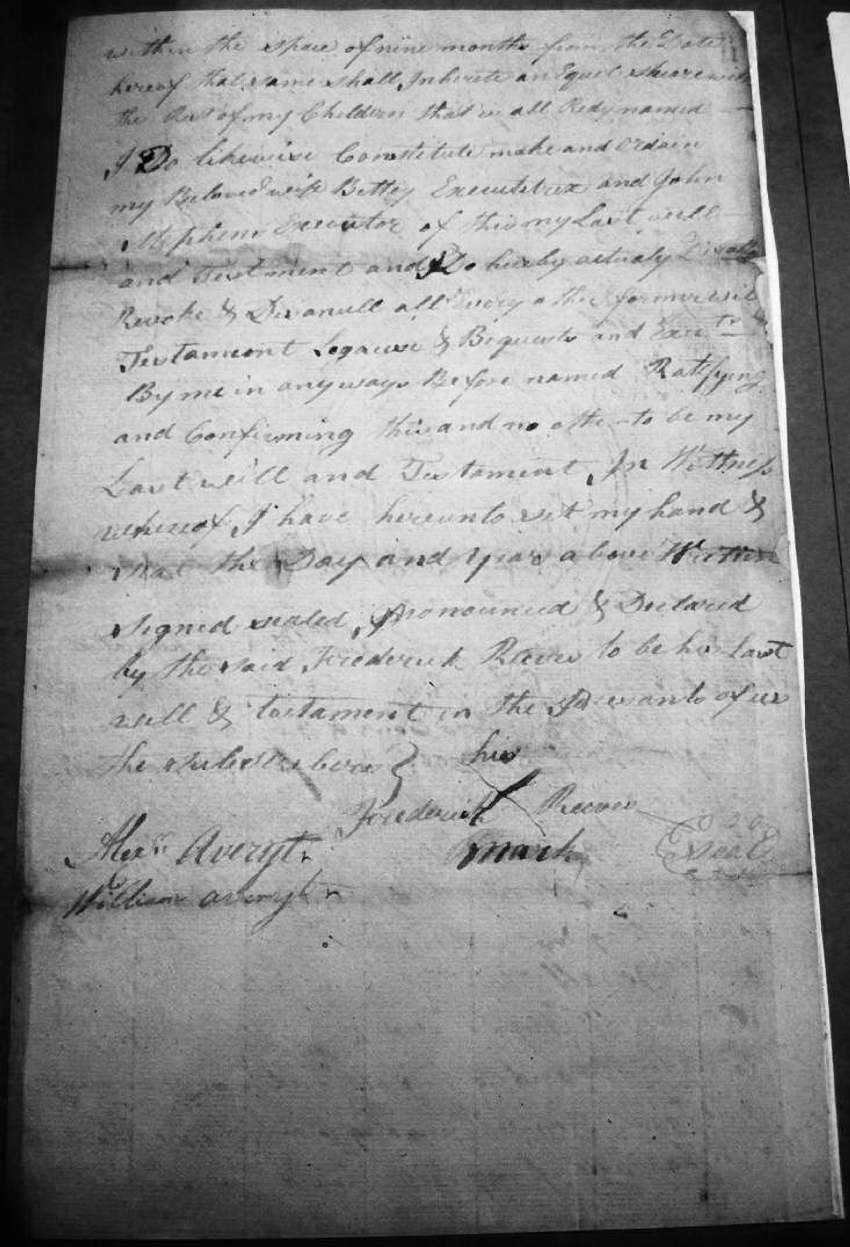 within the space of nine months from the Date
hereof that same shall Inherete an Equel sheare with
the Rest of my Children that is all Redy named
I Do likewise Constitute make and ordain
my Beloved wife Bettey Executetrix and John
Stephens Executor of this my Last will
and Testment and I Do hereby actualy
Revoke & Disanull all Every other former will
Testament Legacies & Bequests and Exectr
By me in any ways Before named Ratifying
and Confirming this and no other to be my
Last will and Testament, In Wittness
whereof I have hereunto set my hand &
seal the Day and Year above Written
signed sealed, pronounced & Declared
by the said Frederick Reeves to be his Last
will & testament in the presents of us
the
his
Frederick X Reeves
mark
Seal
Alexr Averyt
William averyt